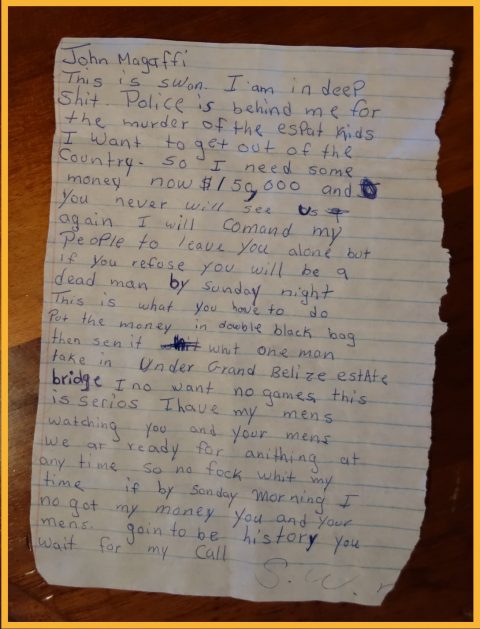 John Magaffi
This is swon. I am in deep
Shit. Police is behind me for
the murder of the espat kids
I want to get out of the
Country. So I need some
money now $150,000 and
you never will see us
again I will comand my
People to leave you alone but
if you refuse you will be a
dead man by sunday night
This is what you have to do
Put the money in dowble black bag
then sen it whit one man
take in Under Grand Belize estate
bridge I no want no games, this
is serios I have my mens
watching you and your mens
we ar ready for anithing at
any time so no fock whit my
time if by sonday morning I
no got my money you and your
mens. goin to be history you
wait for my call
S.W.